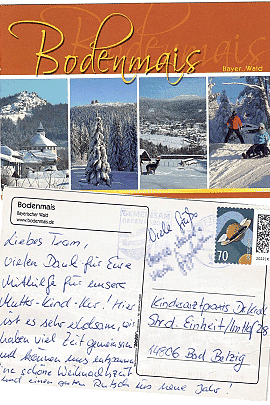 Bodenmais
Bayer. Wald
Bodenmais
Bayerischer Wald
www.bodenmais.de
Liebes Team,
vielen Dank für Eure
Mithilfe für unsere
Mutter-Kind-Kur! Hier
ist es sehr erholsam, wir
haben viel Zeit gemeinsam
und können uns entspannen.
eine schöne Weihnachtszeit
und einen guten Rutsch ins neue Jahr!
Viele Grüße
70
Kinderarztpraxis
Str. d. Einheit/Im Hof 28
14806 Bad Belzig